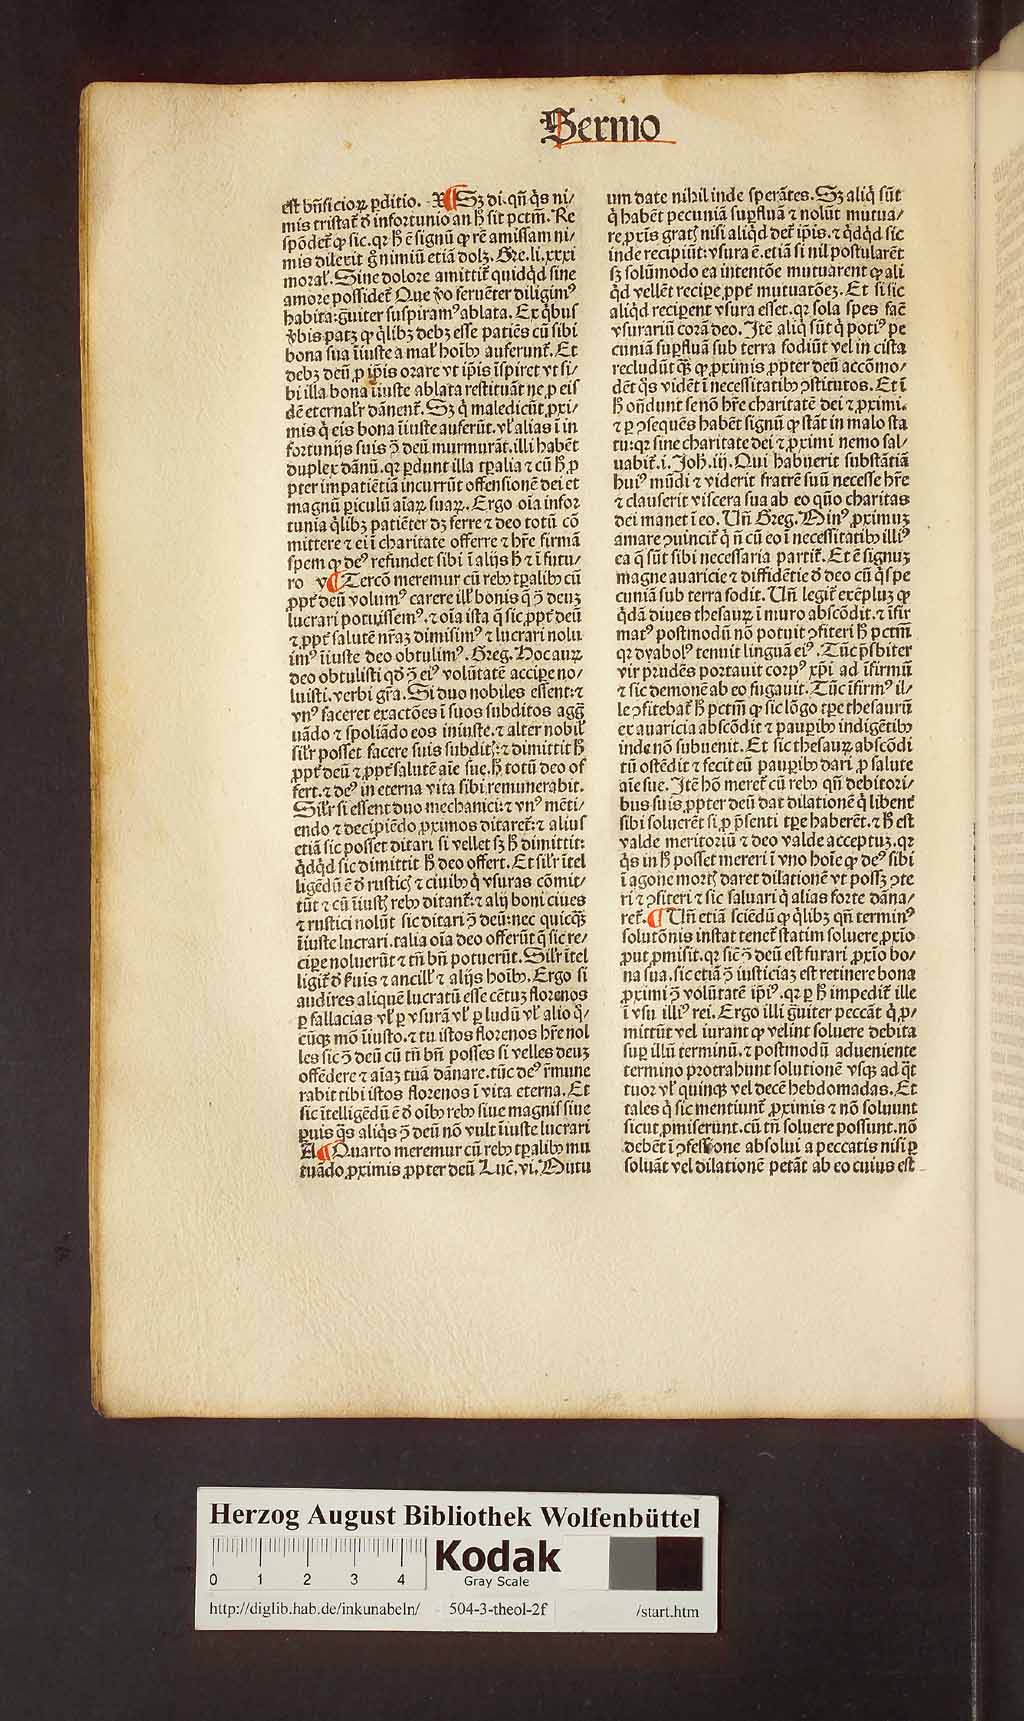 Sermo
est bn̄ficioꝝ ꝑditio. X ¶ Sꝫ di. qn̄ q̇s ni/
mis tristat᷑ ð infortunio an ħ sit pctm̄. Re
spōdet᷑ ꝙ sic. qꝛ ħ ē signū ꝙ rē amissam ni/
mis dilexit ḡ nimiū etiā dolꝫ. Gre. li. xxxi
moral̓. Sine dolore amittit᷑ quidq̇d sine
amore possidet᷑ Que ꝟo feruēter diligimꝰ
habita: g̃uiter suspiramꝰ ablata. Ex q̇bus
ꝟbis patꝫ ꝙ q̇libꝫ debꝫ esse patiēs cū sibi
bona sua īiuste a mal̓ hoībꝫ auferunt᷑. Et
debꝫ deū ꝓ ip̄is orare vt ip̄is īspiret vt si/
bi illa bona īiuste ablata restituāt ne ꝓ eis
dē eternal̓r dānent᷑. Sꝫ q̇ maledicūt ꝓxi/
mis q̇ eis bona īiuste auferūt. vl̓ alias ī in
fortunijs suis ꝯ̄ deū murmurāt. illi habēt
duplex dānū. qꝛ ꝑdunt illa tꝑalia ⁊ cū ħ ꝓ
pter impatiētiā incurrūt offensionē dei et
magnū ꝑiculū aīaꝝ suaꝝ. Ergo oīa infor
tunia q̇libꝫ patiēter dꝫ ferre ⁊ deo totū cō
mittere ⁊ ei ī charitate offerre ⁊ hr̄e firmā
spem ꝙ deꝰ refundet sibi ī alijs ħ ⁊ ī futu/
ro v ¶ Tercō meremur cū rebꝫ tꝑalibꝫ cū
ꝓpt᷑ deū volumꝰ carere ill̓ bonis q̄ ꝯ̄ deuꝫ
lucrari potuissemꝰ. ⁊ oīa ista q̄ sic ꝓpt᷑ deū
⁊ ꝓpt᷑ salutē nr̄aꝫ dimisimꝰ ⁊ lucrari nolu
imꝰ īiuste deo obtulimꝰ. Greg. Hoc auꝝ
deo obtulisti qd̓ ꝯ̄ eiꝰ volūtatē accipe no/
luisti. verbi gr̄a. Si duo nobiles essent: ⁊
vnꝰ faceret exactōes ī suos subditos agg̃
uādo ⁊ spoliādo eos iniuste. ⁊ alter nobil̓
sil̓r posset facere suis subdit̓: ⁊ dimittit ħ
ꝓpt᷑ deū ⁊ ꝓpt᷑ salutē aīe sue. ħ totū deo of
fert. ⁊ deꝰ in eterna vita sibi remunerabit.
Sil̓r si essent duo mechanici: ⁊ vnꝰ mēti/
endo ⁊ decipiēdo ꝓximos ditaret᷑: ⁊ alius
etiā sic posset ditari si vellet sꝫ ħ dimittit:
q̇dq̇d sic dimittit ħ deo offert. Et sil̓r ītel
ligēdū ē ð rustic̓ ⁊ ciuibꝫ q̇ vsuras cōmit/
tūt ⁊ cū īiust̓ rebꝫ ditant᷑: ⁊ alij boni ciues
⁊ rustici nolūt sic ditari ꝯ̄ deū: nec quicqꝫ
īiuste lucrari. talia oīa deo offerūt q̄ sic re/
cipe noluerūt ⁊ tn̄ bn̄ potuerūt. Sil̓r ītel
ligit᷑ ð ẜuis ⁊ ancill̓ ⁊ alijs hoībꝫ. Ergo si
audires aliquē lucratū esse cētuꝫ florenos
ꝑ fallacias vl̓ ꝑ vsurā vl̓ ꝑ ludū vl̓ alio q̊/
cūqꝫ mō īiusto. ⁊ tu istos florenos hr̄e nol
les sic ꝯ̄ deū cū tn̄ bn̄ posses si velles deuꝫ
offēdere ⁊ aīaꝫ tuā dānare. tūc deꝰ r̄mune
rabit tibi istos florenos ī vita eterna. Et
sic ītelligēdū ē ð oībꝫ rebꝫ siue magnis siue
ꝑuis q̄s aliq̇s ꝯ̄ deū nō vult īiuste lucrari
A ¶ Quarto meremur cū rebꝫ tꝑalibꝫ mu
tuādo ꝓximis ꝓpter deū Luc̄. vi. Mutu
um date nihil inde sperātes. Sꝫ aliq̇ sūt
q̇ habēt pecuniā suꝑfluā ⁊ nolūt mutua/
re ꝓxīs grat̓ nisi aliq̇d det᷑ ip̄is. ⁊ q̇dq̇d sic
inde recipiūt: vsura ē. etiā si nil postularēt
sꝫ solūmodo ea intentōe mutuarent ꝙ ali
q̇d vellēt recipe ꝓpt᷑ mutuatōeꝫ. Et si sic
aliq̇d reciperent vsura esset. qꝛ sola spes fac̄
vsurariū corā deo. Itē aliq̇ sūt q̇ potiꝰ pe
cuniā suꝑfluā sub terra fodiūt vel in cista
recludūt q̄ꝫ ꝙ ꝓximis ꝓpter deū accōmo/
dēt q̄s vidēt ī necessitatibꝫ ꝯstitutos. Et ī
ħ on̄dunt se nō hr̄e charitatē dei ⁊ ꝓximi.
⁊ ꝑ ꝯsequēs habēt signū ꝙ stāt in malo sta
tu: qꝛ sine charitate dei ⁊ ꝓximi nemo sal/
uabit᷑. i. Joh̄. iij. Qui habuerit substātiā
huiꝰ mūdi ⁊ viderit fratrē suū necesse hr̄e
⁊ clauserit viscera sua ab eo quō charitas
dei manet ī eo. Un̄ Greg. Minꝰ ꝓximuꝫ
amare ꝯuincit᷑ q̇ n̄ cū eo ī necessitatibꝫ illiꝰ
ea q̄ sūt sibi necessaria partit᷑. Et ē signuꝫ
magne auaricie ⁊ diffidētie ð deo cū q̇s pe
cuniā sub terra fodit. Un̄ legit᷑ exēpluꝫ ꝙ
q̇dā diues thesauꝝ ī muro abscōdit. ⁊ īfir
matꝰ postmodū nō potuit ꝯfiteri ħ pctm̄
qꝛ dyabolꝰ tenuit linguā eiꝰ. Tūc p̄sbiter
vir prudēs portauit corpꝰ xp̄i ad īfirmū
⁊ sic demonē ab eo fugauit. Tūc īfirmꝰ il/
le ꝯfitebat᷑ ħ pctm̄ ꝙ sic lōgo tꝑe thesaurū
ex auaricia abscōdit ⁊ pauꝑibꝫ indigētibꝫ
inde nō subuenit. Et sic thesauꝝ abscōdi
tū ostēdit ⁊ fecit eū pauꝑibꝫ dari ꝓ salute
aīe sue. Itē hō meret᷑ cū rebꝫ qn̄ debitori/
bus suis ꝓpter deū dat dilationē q̇ libent᷑
sibi soluerēt si ꝓ p̄senti tꝑe haberēt. ⁊ ħ est
valde meritoriū ⁊ deo valde acceptuꝫ. qꝛ
q̇s in ħ posset mereri ī vno hoīe ꝙ deꝰ sibi
ī agone mort̓ daret dilationē vt possꝫ ꝯte
ri ⁊ ꝯfiteri ⁊ sic saluari q̇ alias forte dāna/
ret᷑. ¶ Un̄ etiā sciēdū ꝙ q̇libꝫ qn̄ terminꝰ
solutōnis instat tenet᷑ statim soluere ꝓxīo
ꝓut ꝓmisit. qꝛ sic ꝯ̄ deū est furari ꝓxīo bo/
na sua. sic etiā ꝯ̄ iusticiaꝫ est retinere bona
ꝓximi ꝯ̄ volūtatē ip̄iꝰ. qꝛ ꝑ ħ impedit᷑ ille
ī vsu illiꝰ rei. Ergo illi g̃uiter peccāt q̇ ꝓ/
mittūt vel iurant ꝙ velint soluere debita
suꝑ illū terminū. ⁊ postmodū adueniente
termino protrahunt solutionē vsqꝫ ad q̄t
tuor vl̓ quinqꝫ vel decē hebdomadas. Et
tales q̇ sic mentiunt᷑ ꝓximis ⁊ nō soluunt
sicut ꝓmiserunt. cū tn̄ soluere possunt. nō
debēt ī ꝯfessione absolui a peccatis nisi ꝑ
soluāt vel dilationē petāt ab eo cuius est
Herzog August Bibliothek Wolfenbüttel
0 1 2 3 4
Kodak
Gray Scale
http://diglib.hab.de/inkunabeln/ 504-3-theol-2f /start.htm